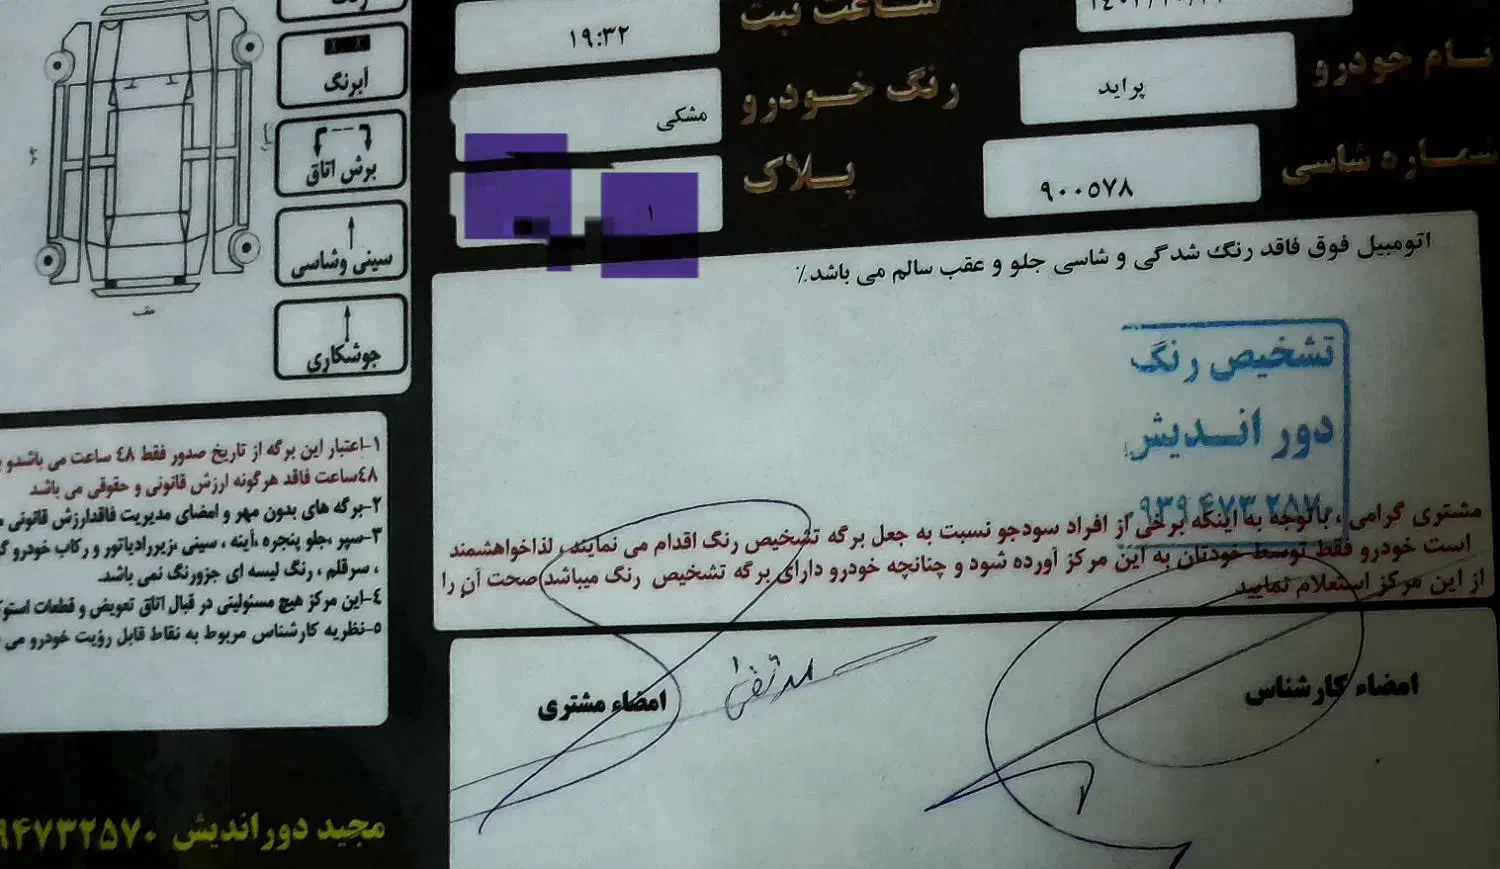 ساعت ثبت
۱۹:۳۲
نام خودرو
پراید
رنگ خودرو
مشکی
شماره شاسی
۹۰۰۵۷۸
پلاک
۱
رنگ
آبرنگ
برش اتاق
سینی وشاسی
جوشکاری
عقب
اتومبیل فوق فاقد رنگ شدگی و شاسی جلو و عقب سالم می باشد٪
تشخیص رنگ
دور اندیش
مشتری گرامی ، باتوجه به اینکه برخی از افراد سودجو نسبت به جعل برگه تشخیص رنگ اقدام می نمایند ، لذاخواهشمند
است خودرو فقط توسط خودتان به این مرکز آورده شود و چنانچه خودرو دارای برگه تشخیص رنگ میباشد صحت آن را
از این مرکز استعلام نمایید
امضاء کارشناس
امضاء مشتری
۱-اعتبار این برگه از تاریخ صدور فقط ۴۸ ساعت می باشدو
۴۸ساعت فاقد هرگونه ارزش قانونی و حقوقی می باشد
۲-برگه های بدون مهر و امضای مدیریت فاقدارزش قانونی
۳-سپر ،جلو پنجره ،آینه ، سینی ،زیررادیاتور و رکاب خودرو
، سرقلم ، رنگ لیسه ای جزورنگ نمی باشد.
۴-این مرکز هیچ مسئولیتی در قبال اتاق تعویض و قطعات
۵-نظریه کارشناس مربوط به نقاط قابل رؤیت خودرو می
مجید دوراندیش ۹۴۷۳۲۵۷۰